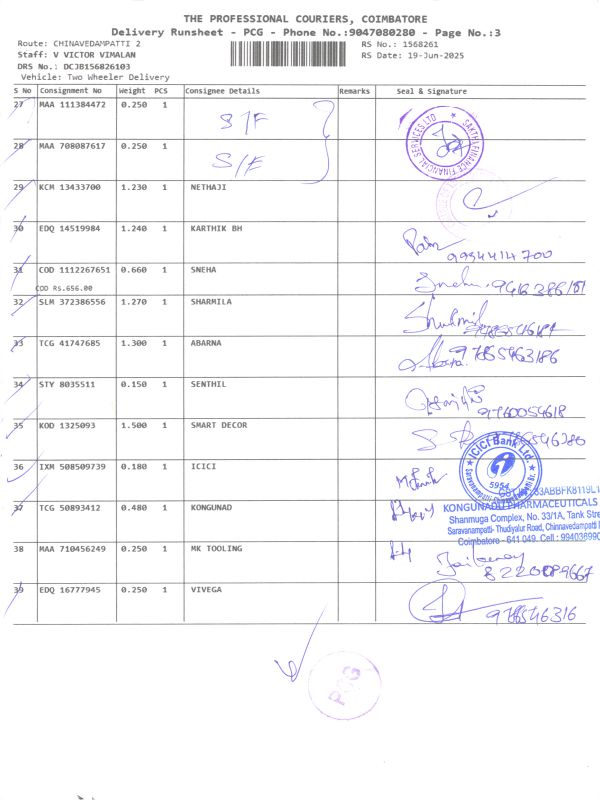 THE PROFESSIONAL COURIERS, COIMBATORE
Delivery Runsheet - PCG - Phone No.:9047080280 - Page No.:3
Route: CHINAVEDAMPATTI 2
RS No.: 1568261
Staff: V VICTOR VIMALAN
RS Date: 19-Jun-2025
DRS No.: DCJB156826103
Vehicle: Two Wheeler Delivery
S No Consignment No Weight PCS Consignee Details Remarks Seal & Signature
27 MAA 111384472 0.250 1 S/F
SAKTHI FINANCE FINANCIAL SERVICES LTD
28 MAA 708087617 0.250 1 S/F
29 KCM 13433700 1.230 1 NETHAJI
30 EDQ 14519984 1.240 1 KARTHIK BH
9944414700
31 COD 1112267651 0.660 1 SNEHA
COD Rs.656.00
32 SLM 372386556 1.270 1 SHARMILA
33 TCG 41747685 1.300 1 ABARNA
34 STY 8035511 0.150 1 SENTHIL
35 KOD 1325093 1.500 1 SMART DECOR
36 IXM 508509739 0.180 1 ICICI
ICICI Bank Ltd.
5954
37 TCG 50893412 0.480 1 KONGUNAD
KONGUNADU PHARMACEUTICALS
Shanmuga Complex, No. 33/1A, Tank Stre
Saravanampatti- Thudiyalur Road, Chinnavedampatti
Coimbatore - 641 049. Cell : 99403699
38 MAA 710456249 0.250 1 MK TOOLING
8220089667
39 EDQ 16777945 0.250 1 VIVEGA
PCG